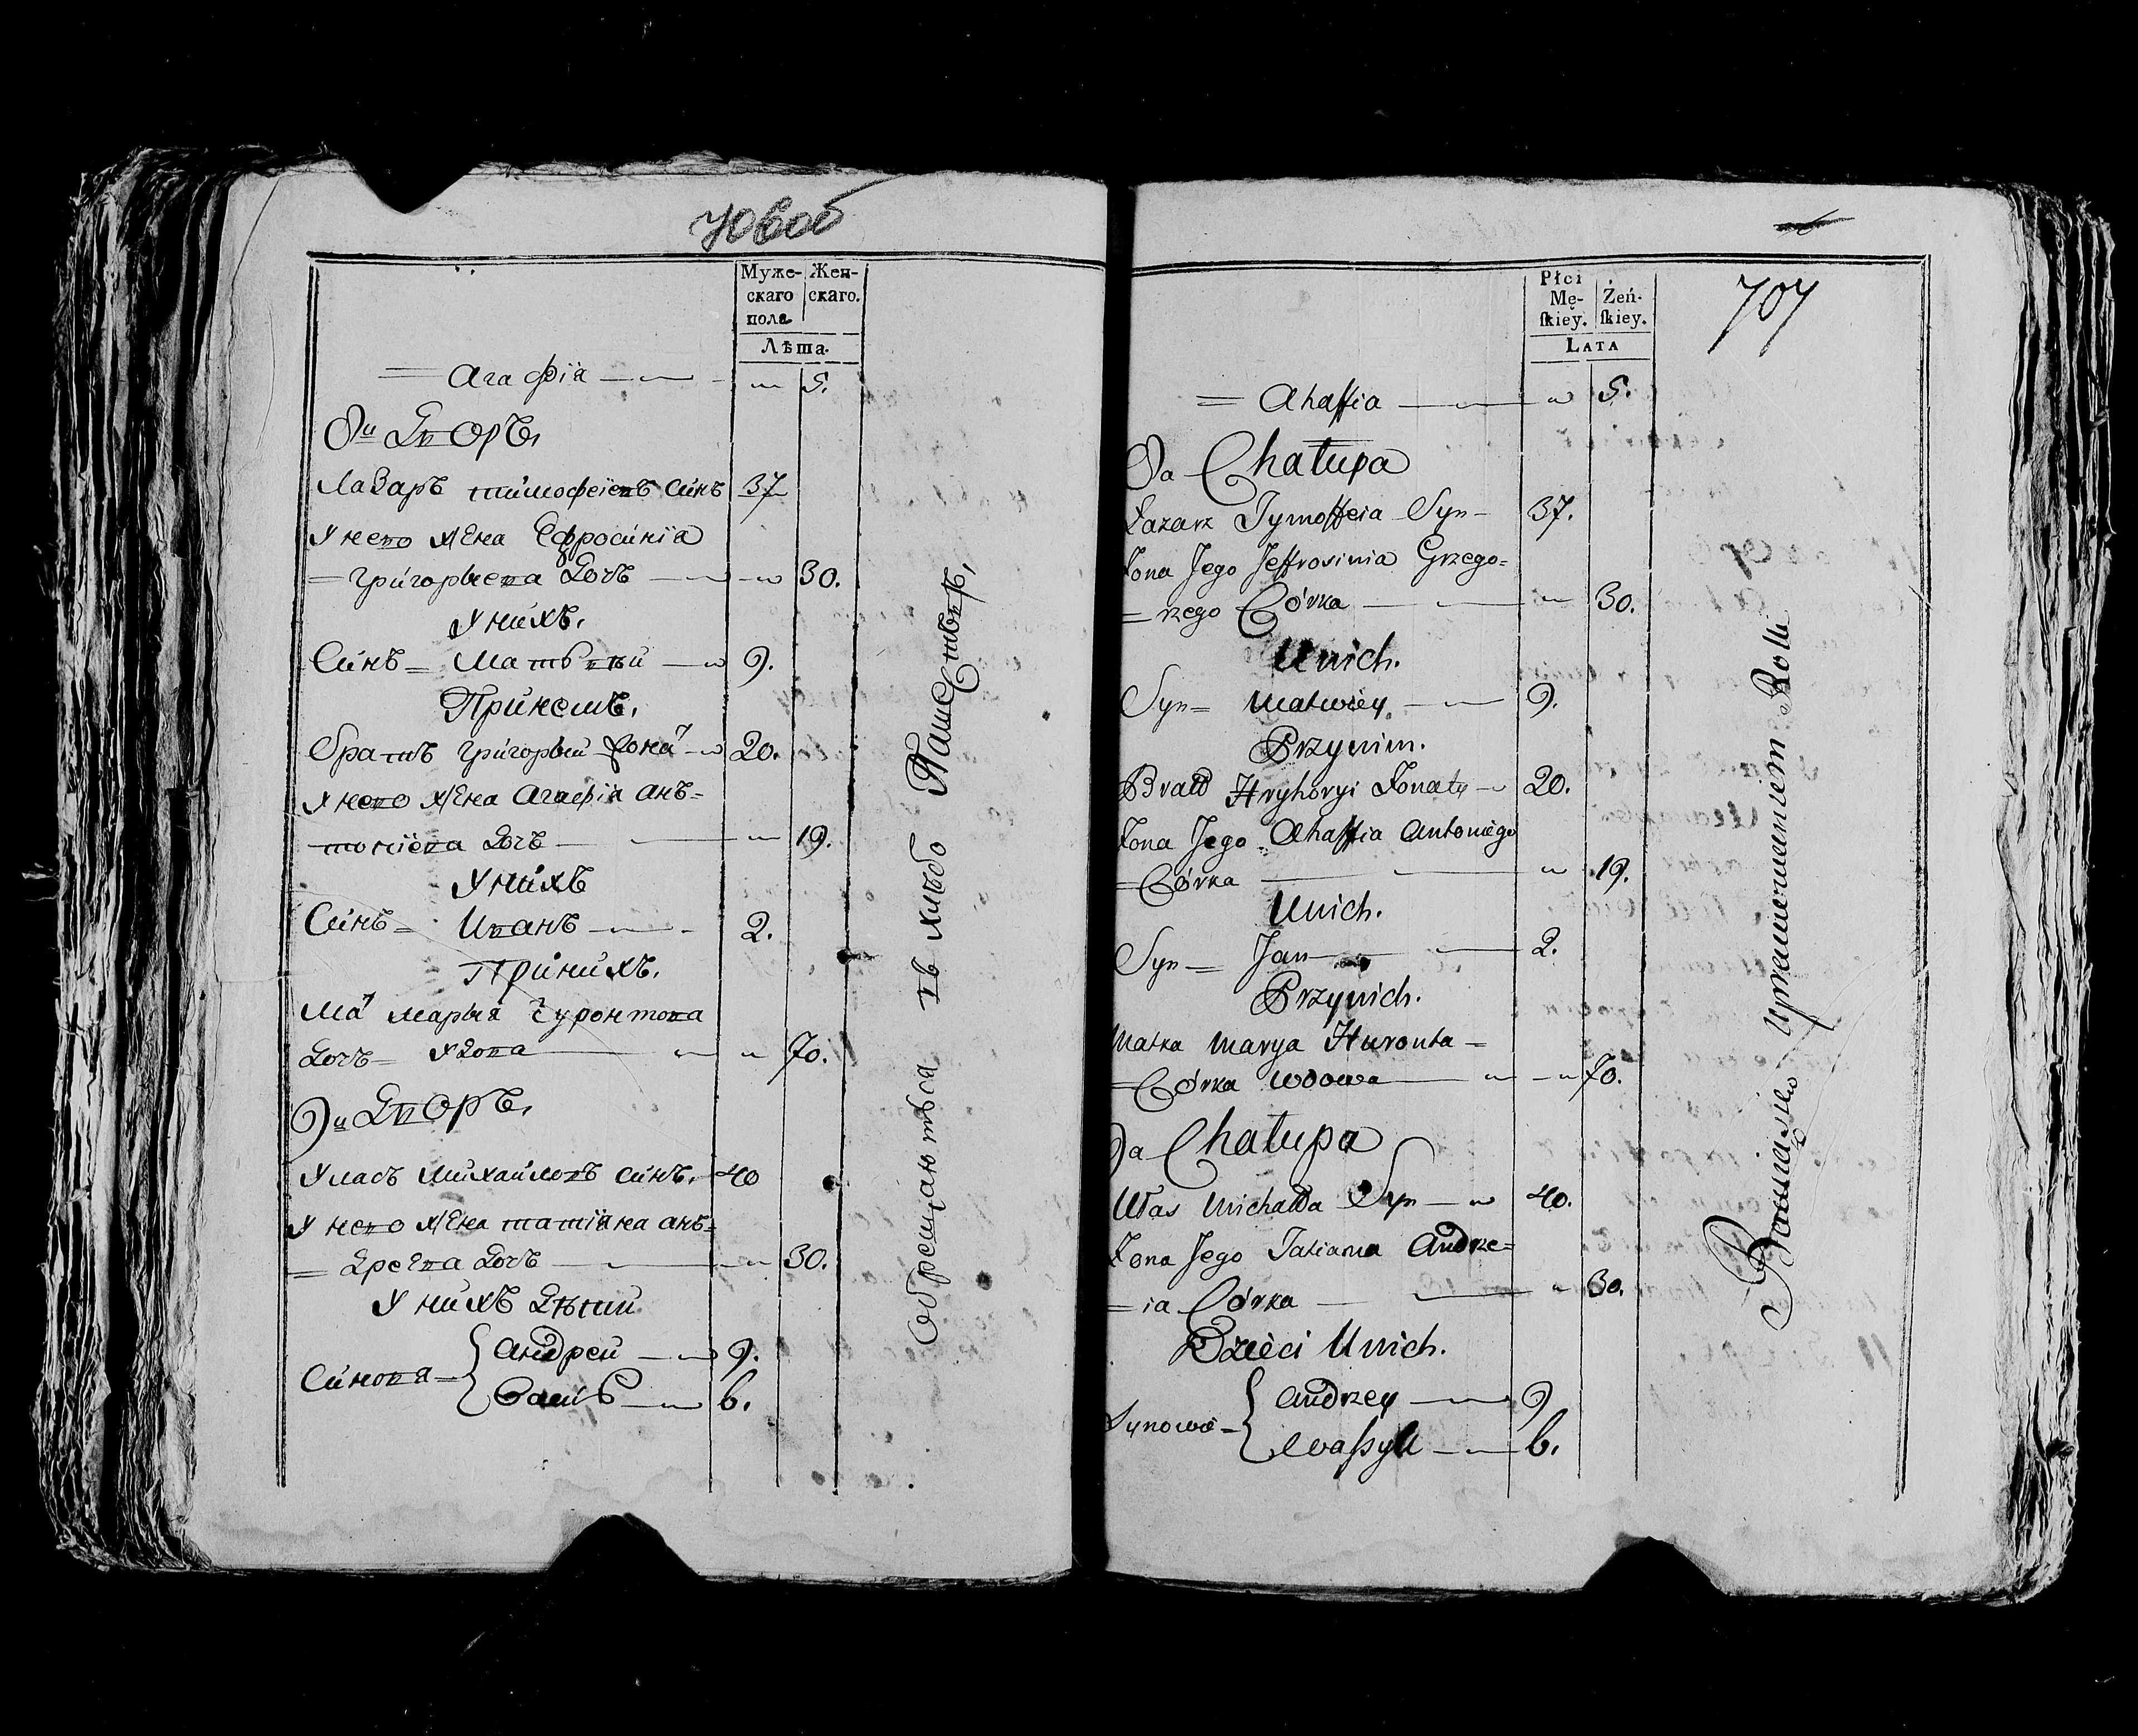 706 об
Муже-
скаго
пола
Жен-
скаго.
Лѣта.
= Агафїа — 5.
8й Дворъ,
Лазаръ тимофеїевъ синъ 37
У него жена Ефросинїа
= григорьева Дочъ — 30.
У нихъ,
Синъ = Матвѣй — 9.
При немъ,
братъ григорый жона — 20.
У него жена агафїа анъ=
тонїева Дочъ — 19.
У нихъ
Синъ = Иванъ — 2.
При нихъ,
марыя
Дочъ = Удова — 70.
9й Дворъ,
Уласъ михайловъ синъ, 40
У него жена татїана анъ=
= Дреева Дочъ — 30.
У нихъ Дѣти
Синова
Андрей — 9.
Василь — 6.
Обрещаютьса въ хлѣбо Пашествѣ,
707
Płci
Mę-
ſkiey.
Żeń-
ſkiey.
LATA
= Ahaffia — 5.
8a Chałupa
Łazarz Tymoffeia Syn — 37.
Żona Jego Jeffrosinia Grzego=
= rzego Córka — 30.
Unich.
Syn = Matwiéy — 9.
Przynim.
Bratt Hryhoryi Żonaty — 20.
Żona Jego Ahaffia Antoniégo
= Córka — 19.
Unich.
Syn = Jan — 2.
Przynich.
Matka Marya Huronta =
= Córka wdowa — 70.
9a Chałupa
Ułas Michałła Syn — 40.
Żona Jego Tatiana Andrze=
= ia Córka — 30.
Dzieci Unich.
Synowé
Andrzey — 9
Waſsyll — 6.
Bawiąsię Uprawnemeniem Rolli